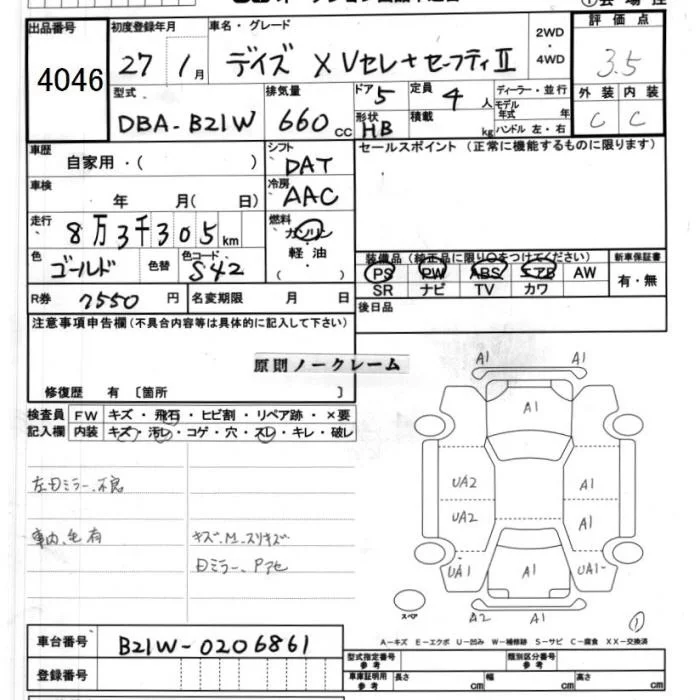 出品番号
4046
初度登録年月
27 / 1月
車名・グレード
デイズ X Vセレ+セーフティⅡ
2WD
・
4WD
評価点
3.5
型式
DBA-B21W
排気量
660cc
ドア 5
定員 4人
ディーラー・並行
モデル年式 年
形状 HB
積載 kg
ハンドル 左・右
外装 内装
C C
車歴
自家用・( )
シフト
DAT
セールスポイント(正常に機能するものに限ります)
車検
年 月( 日)
冷房
AAC
走行
8万3千305km
燃料
ガソリン
軽油
( ・ )
色
ゴールド
色替
色コード
S42
装備品(純正品に限り〇をつけてください)
新車保証書
PS PW ABS エアB AW
有・無
SR ナビ TV カワ
R券 7550円
名変期限 月 日
後日品
注意事項申告欄(不具合内容等は具体的に記入して下さい)
原則ノークレーム
修復歴 有 〔箇所 〕
検査員
記入欄
FW キズ・飛石・ヒビ割・リペア跡・×要
内装 キズ・汚レ・コゲ・穴・スレ・キレ・破レ
左ミラー不良
車内毛有
キズ.M.スリキズ
ミラー.Pアセ
A1 A1
A1
UA2 A1
UA2 A1
UA1 A1 UA1
A2 A1
スペア
①
A-キズ E-エクボ U-凹み W-補修跡 S-サビ C-腐食 XX-交換済
車台番号
B21W-0206861
登録番号
型式指定番号 参考
類別区分番号 参考
車庫証明用 参考
長さ cm
幅 cm
高さ cm